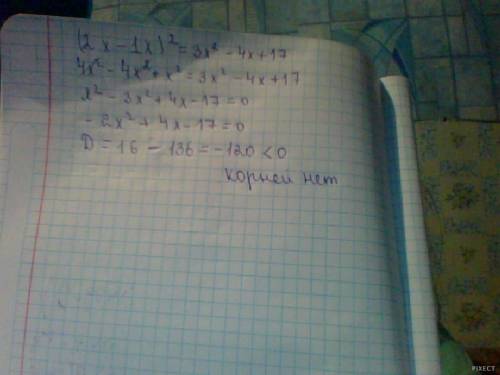 (2x-1x)² = 3x² - 4x + 17
4x² - 4x² + x² = 3x² - 4x + 17
x² - 3x² + 4x - 17 = 0
- 2x² + 4x - 17 = 0
D = 16 - 136 = -120 < 0
корней нет
PIXECT